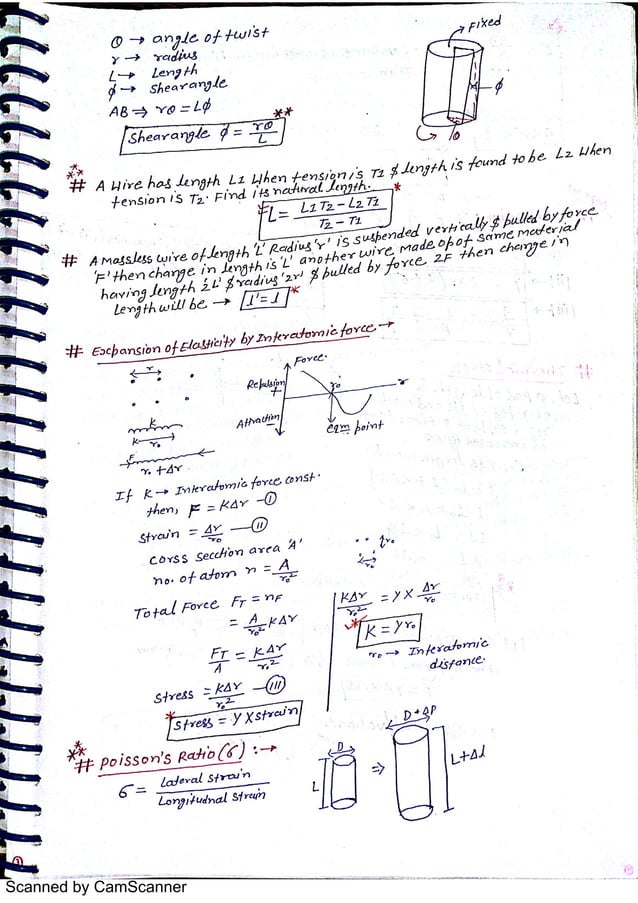 θ → angle of twist
r → radius
L → Length
ϕ → Shearangle
AB ⇒ rθ = Lϕ
Shearangle ϕ = rθ/L **
Fixed
ϕ
θ
**
# A Wire has length L1 When tension is T1 & length is found to be L2 When
tension is T2. Find its natural length.
L = (L1T2 - L2T1)/(T2 - T1) *
# A Massless wire of length 'L' Radius 'r' is suspended vertically & pulled by force
'F' then change in length is 'L' another wire made of same material
having length 2L' & radius '2r' & pulled by force 2F then change in
Length will be → l' = l *
# Exchansion of Elasticity by Interatomic force →
r
Force.
Repulsion
+
r0
r
Attraction
-
eqm point
K
K r0
F
r0 + Δr
If K → Interatomic force const.
then, F = KΔr - (I)
Strain = Δr/r0 - (II)
corss section area 'A'
no. of atom n = A/r0²
Total Force FT = nF
= A/r0² KΔr
FT/A = KΔr/r0²
Stress = KΔr/r0² - (III)
* Stress = Y X Strain
r0
KΔr/r0² = Y X Δr/r0
* K = Yr0
r0 → Interatomic
distance.
**
*
# Poisson's Ratio (σ) :→
σ = Lateral Strain/Longitudnal Strain
D
L
⇒
D + ΔD
L+Δl
Scanned by CamScanner